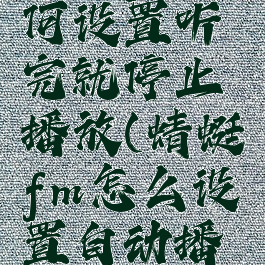 何设置听
完就停止
播放(蜻蜓
fm怎么设
置自动播